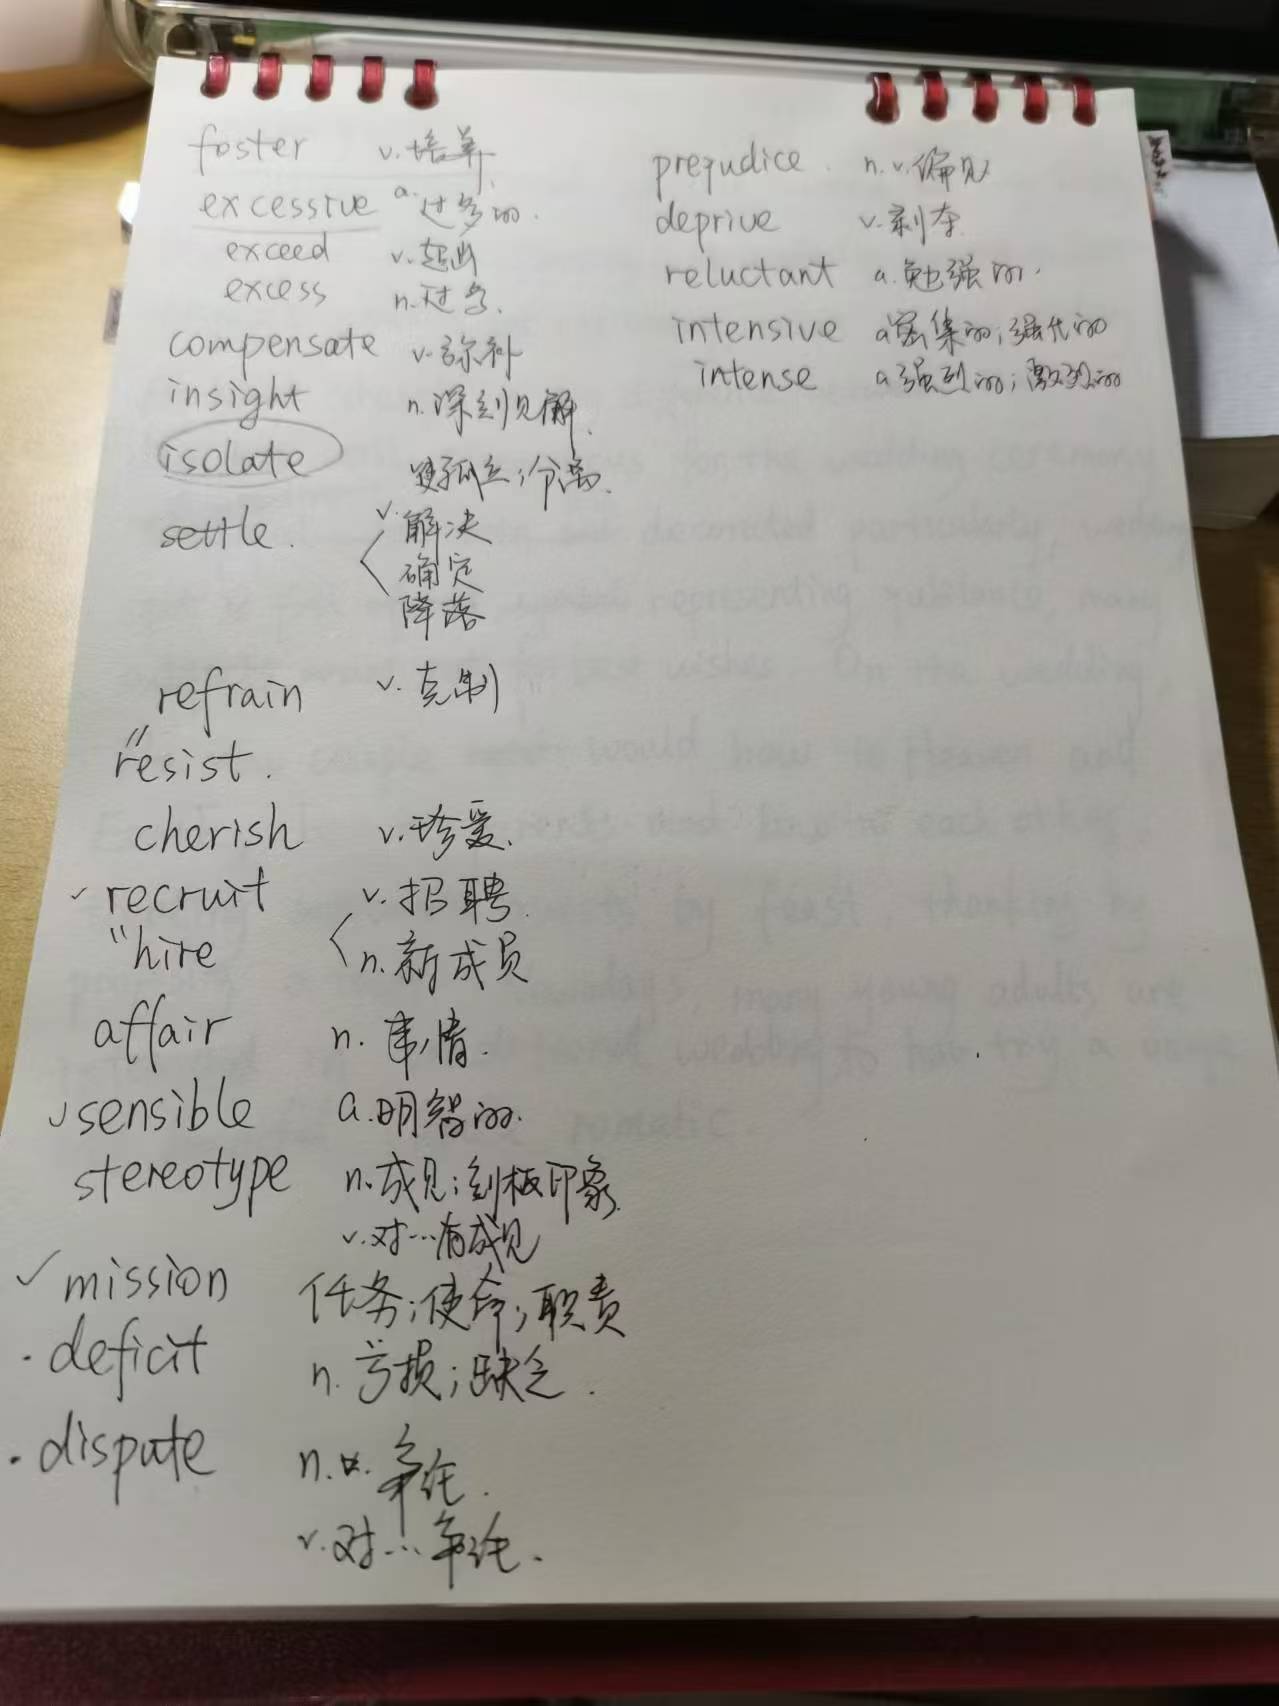 foster v.培养
excessive a.过多的.
exceed v.超出
excess n.过多.
compensate v.弥补
insight n.深刻见解.
isolate 使孤立;分离.
settle. v.解决
确定
降落
refrain v.克制
" resist.
cherish v.珍爱.
✓ recruit v.招聘.
" hire n.新成员
affair n.事情.
✓ sensible a.明智的.
stereotype n.成见;刻板印象.
v.对…有成见
✓ mission 任务;使命;职责
·deficit n.亏损;缺乏.
·dispute n. 争论.
v.对…争论.
prequdice. n.v.偏见
deprive v.剥夺
reluctant a.勉强的.
intensive a密集的;强化的
intense a强烈的;激烈的